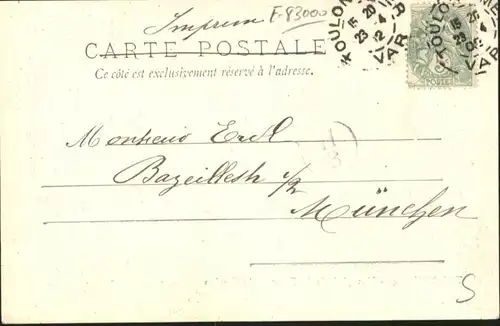 Imprimé F-83000
CARTE POSTALE
Ce côté est exclusivement réservé à l'adresse.
TOULON
VAR
TOULON
VAR
POSTES
Monsieur
Bazeillestr
München
S